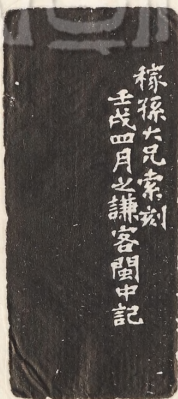 稼孫大兄索刻
壬戌四月之謙客閩中記